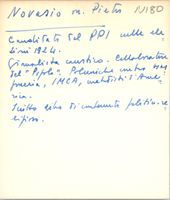 Novasio m. Pietro N180
Candidato del PPI nelle ele-
zioni 1924.
Giornalista caustico. Collaboratore
del "Popolo". Polemiche contro mas
soneria, IMCA, metodisti d'Ame-
rica.
Scritto estro di contenuto politico-re-
ligioso.